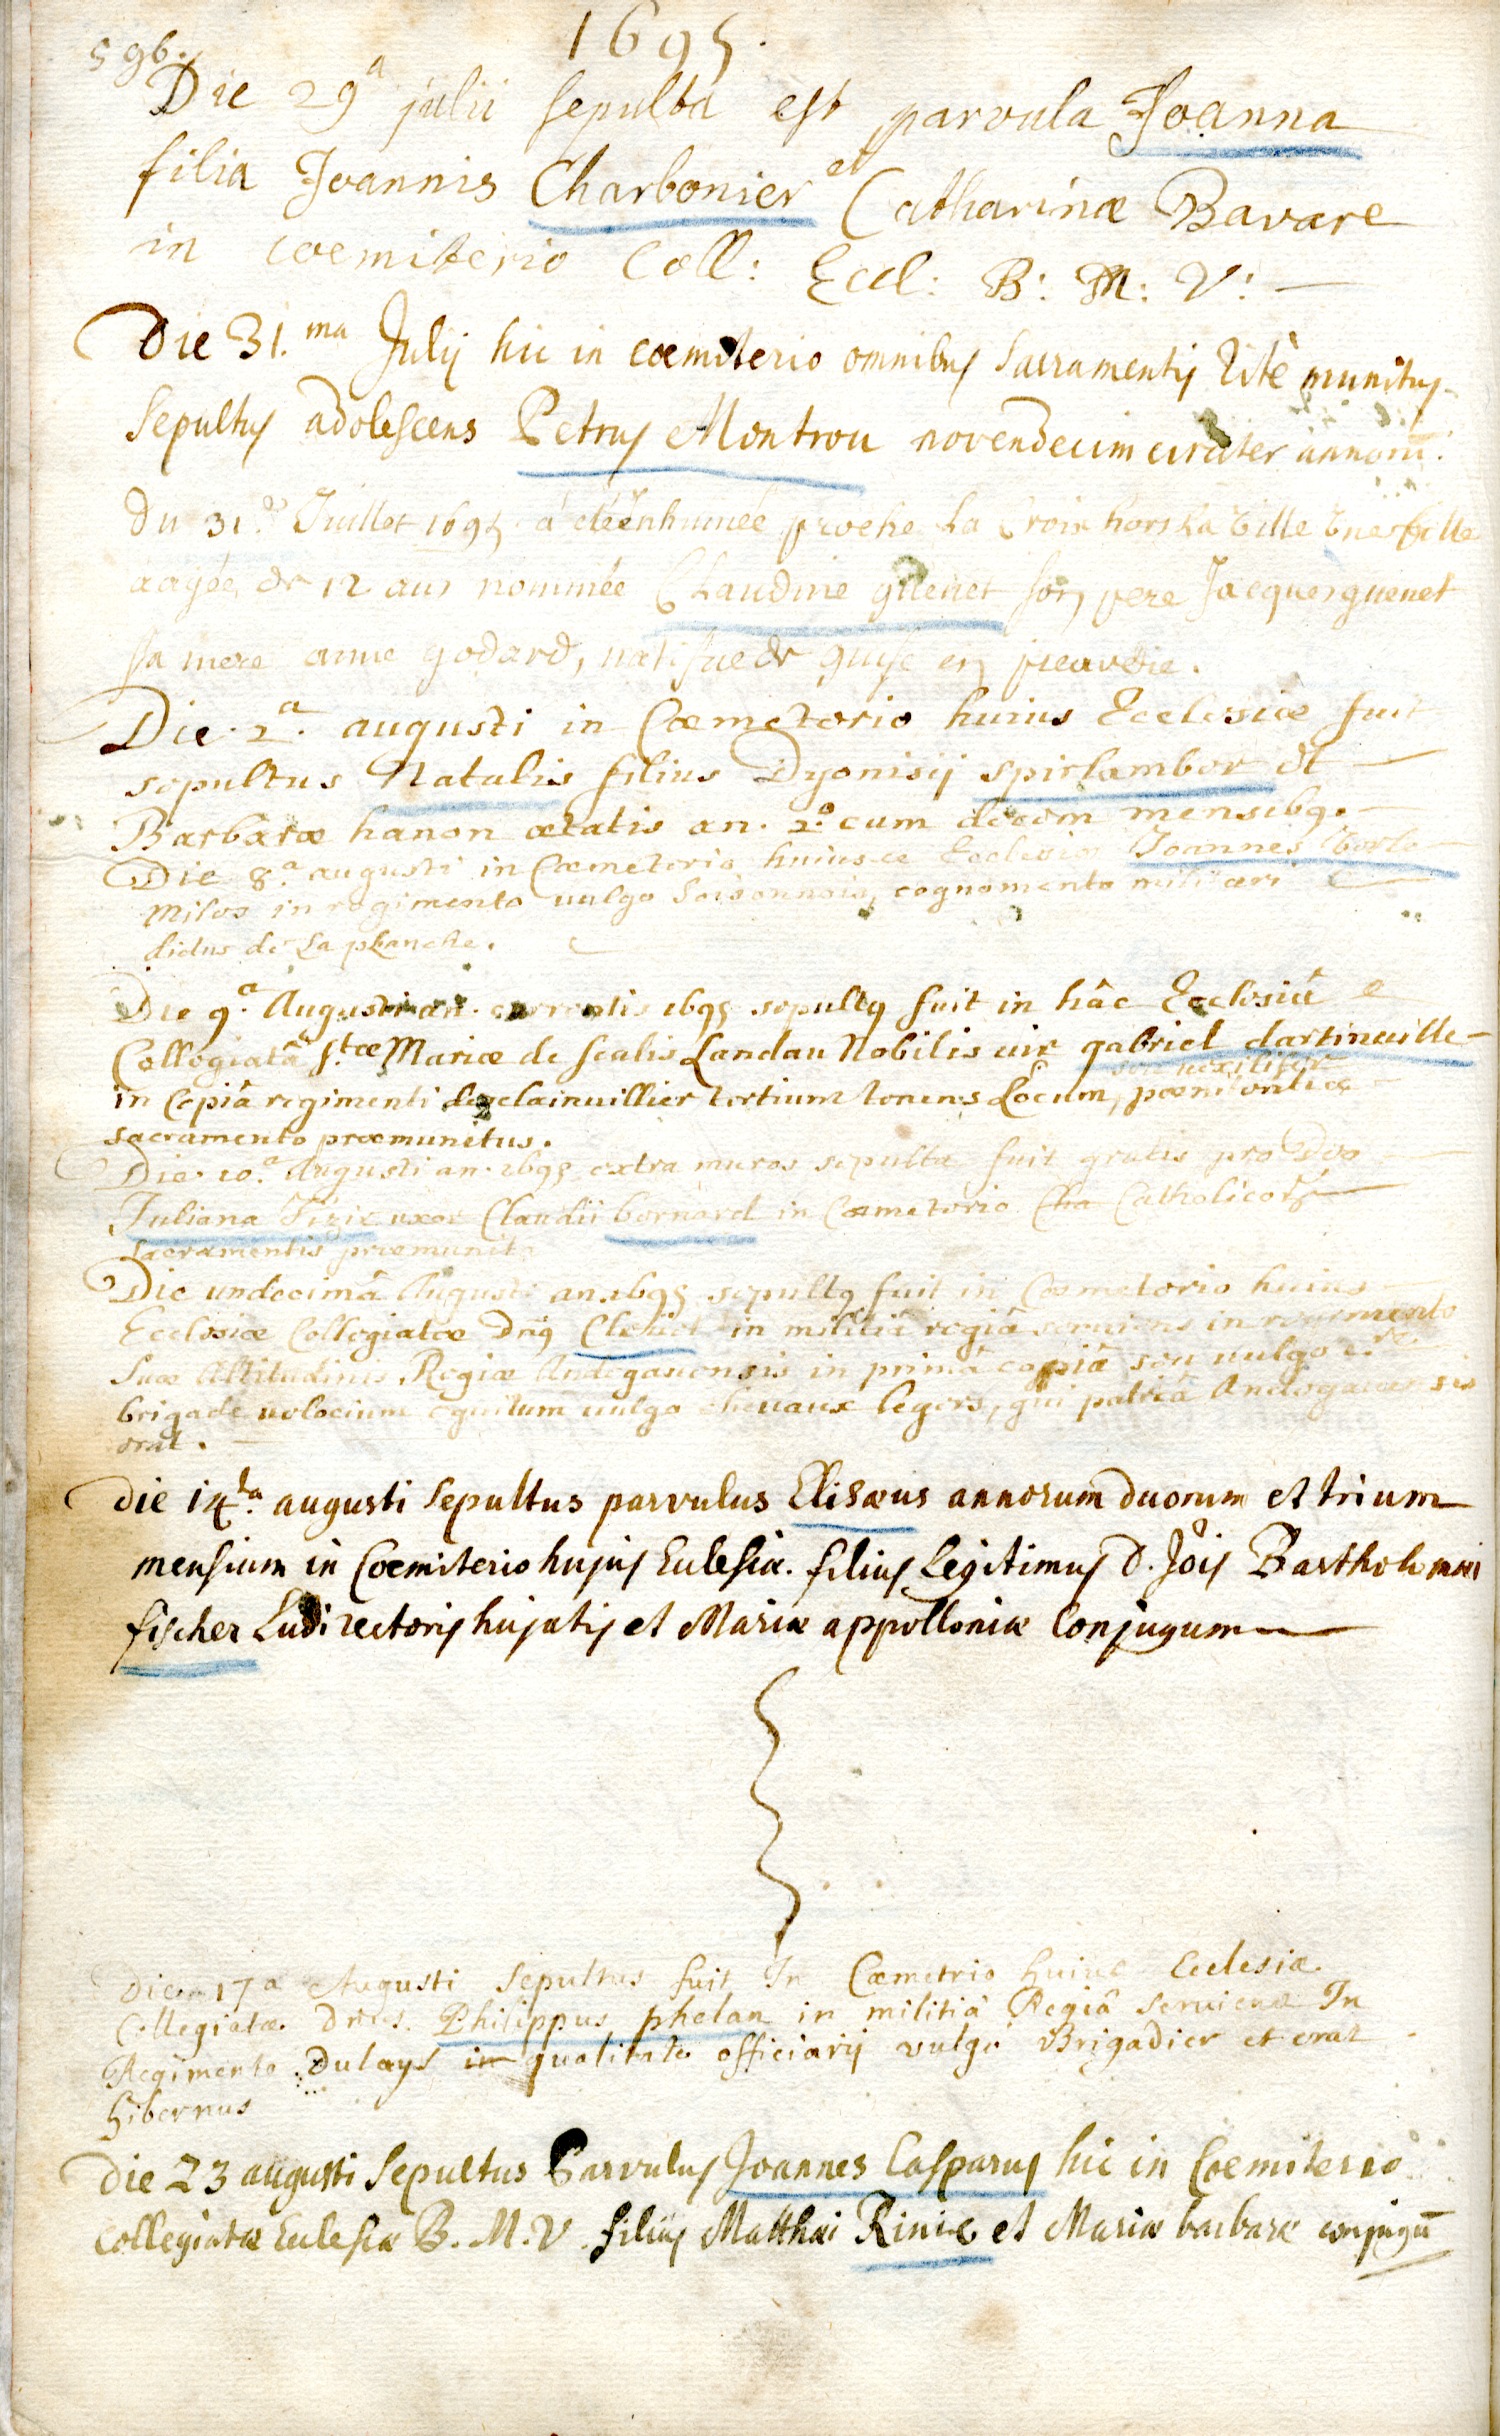 1695.
596.
Die 29a julii sepulta est parvula Joanna
filia Joannis Charbonier et Catharinæ Bavare
in coemiterio Coll: Eccl: B: M: V: —
Die 31.ma Julij hic in cœmiterio omnibus sacramentis ritè munitus
sepultus adolescens Petrus Montrou novendecim circiter annorū.
Du 31.e Juillet 1695 á étéénhumée proche La Croix hors La Ville Une fille
aagée de 12 ans nommée Claudine guenet son pere Jacques guenet
sa mere anne godard, natifue de guise en picardie.
Die 2.a augusti in Cœmeterio huius Ecclesiæ fuit
sepultus Natalis filius Dyonisij spirlambor et
Barbaræ hanon ætatis an. 2.o cum decem mensibq.
Die 8.a augusti in Cœmeterio huiusce Ecclesiæ Joannes
Miles in regimento vulgo Soisonnois, cognomento militari
dictus de La planche.
Die 9.a Augusti an. currentis 1695 sepultq fuit in hâc Ecclesiâ
Collegiatâ S.tæ Mariæ de scalis Landau Nobilis vir gabriel dartinuille
in Copiâ regimenti de clainuillier tertium tenens Locum, pœnitentiæ
sacramento præmunitus.
Die 10.a Augusti an. 1695 extra muros sepulta fuit gratis pro Deo
Juliana uxor Claudii bernard in Cœmeterio Catholicor
sacramentis præmunita
Die undecimâ Augusti an. 1695 sepultq fuit in Cœmeterio huius
Ecclesiæ Collegiatæ Dnq in militiâ regiâ seruiens in regimento
Suæ Altitudinis Regiæ Andegauensis in primâ copiâ seu vulgo
brigade uelocium equitum uulgo cheuaux legers, qui patriâ Andegauensis
erat.
Die 14.ta augusti sepultus parvulus Elisæus annorum duorum et trium
mensium in Coemiterio hujus Eclesiæ. filius Legitimus D. Jois Bartholomæi
fischer Ludi rectoris hujatis et Mariæ appolloniæ Conjugum
Die 17a Augusti sepultus fuit In Cœmetrio huius Ecclesiæ
Collegiatæ Philippus phelan in militiâ Regiâ seruiens In
Regimento Dulays in qualitate officiarij vulgò Brigadier et erat
hibernus
Die 23 augusti sepultus Parvulus Joannes Casparus hic in Coemiterio
Collegiatæ Eclesiæ B. M. V. filius Matthæi Rinie et Mariæ barbaræ conjugū